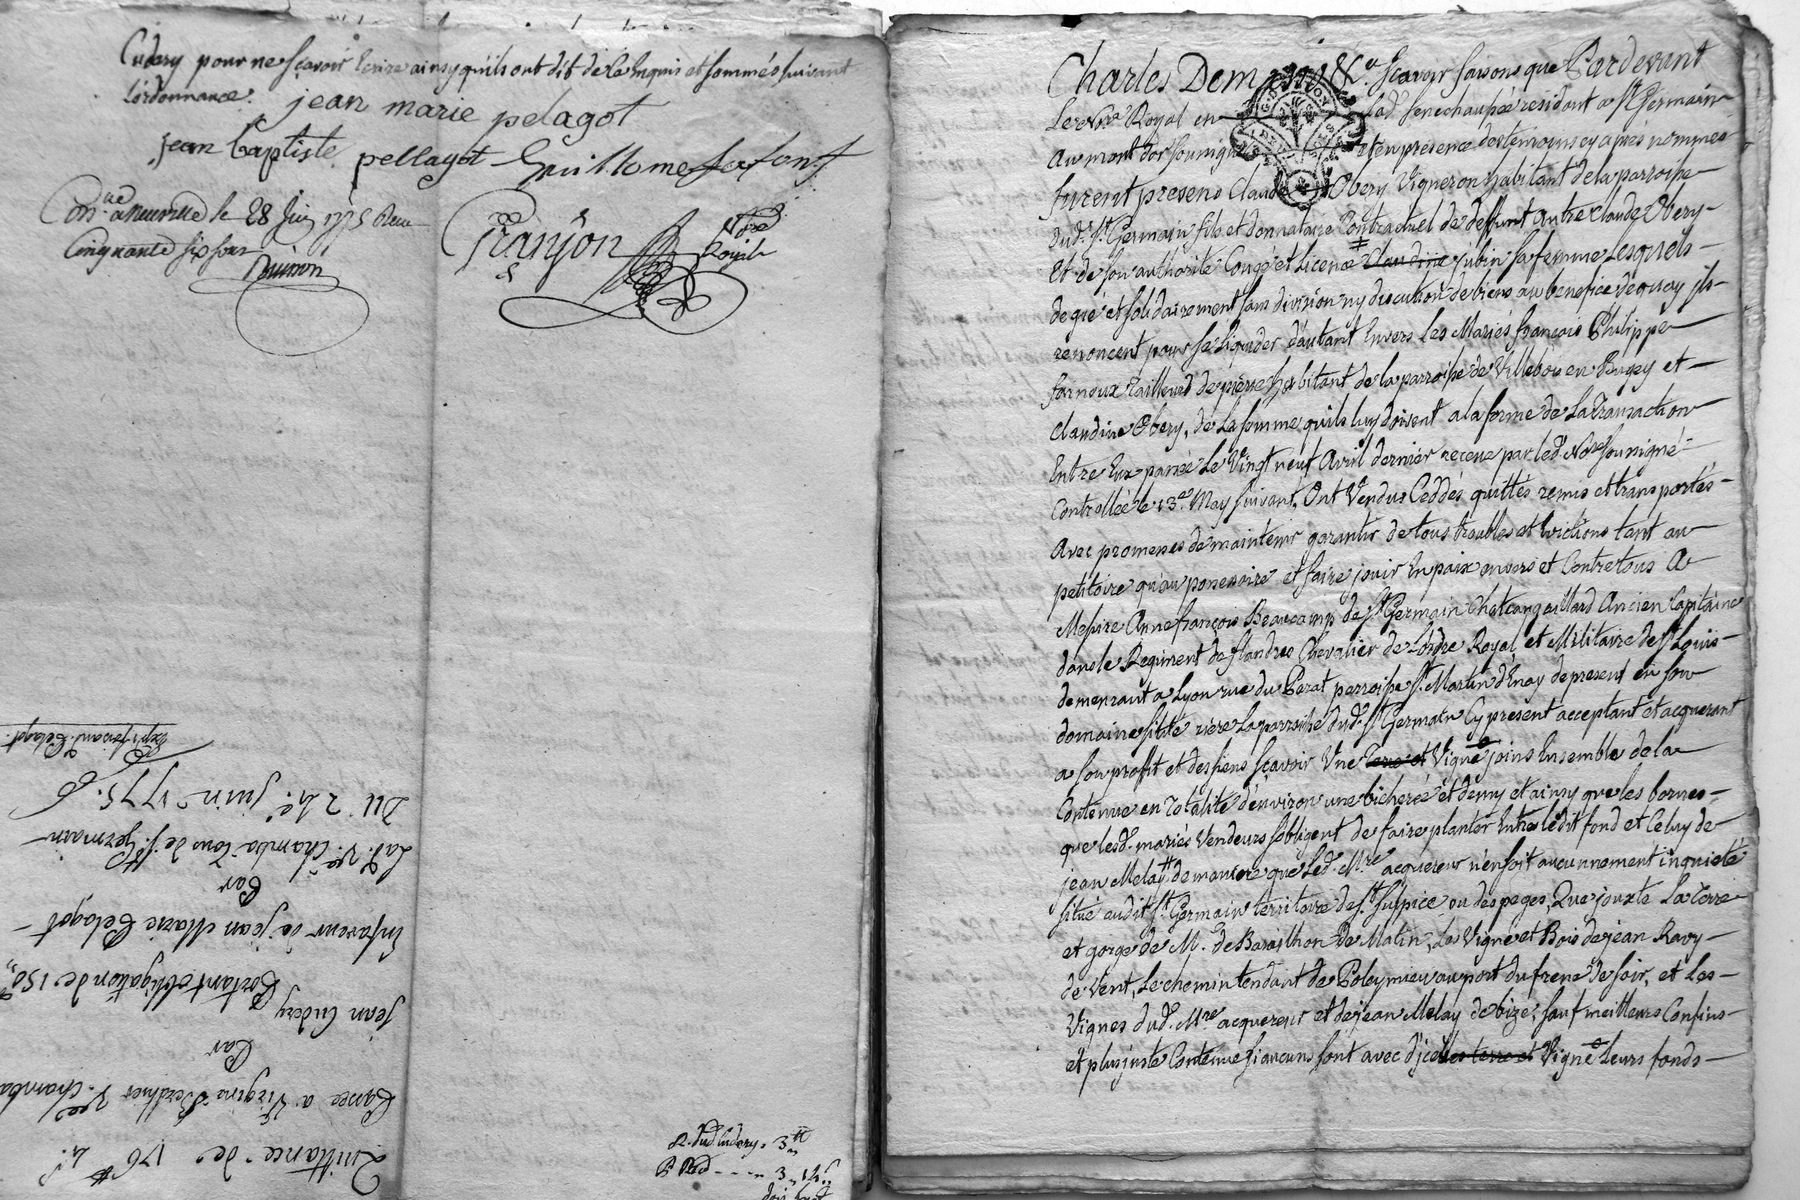 Cudery pour ne sçavoir Ecrire ainsy qu'ils ont dit de ce Enquis et sommés suivant
L'ordonnance.
jean marie pelagot
jean baptiste pellagot Guillome Lafont
Con.lé a Neuville le 28 Juin 1775 Reçu
Cinquante six sous
Granjon
Nore Royal
Quittance de 176# 4s
Passée a Virginie Berthier Ve. Chamba
Par
jean Cudery
Portant obligation de 150#
En faveur de jean Marie Pelagot
Par
Lad. Ve. Chamba Tous de St. Germain
Du 24e. juin 1775.
Exp. jean Pelagot.
R. dud Cudery . 3#
3 12s
Charles Dem &ca. Sçavoir faisons que Pardevant
Le Nre Royal en lad. Senechaussée résidant a St Germain
Au mont d'or soussigné et en présence des témoins cy après nommés
furent presens Claude Obery Vigneron habitant de la parroisse
dud. St. Germain, fils et donnataire Contractuel de deffunt autre Claude Obery
Et de son authorité Congé et Licence Claudine jubin sa femme Lesquels
de gré et solidairement sans division ny discution de biens au benefice dequoy ils
renoncent pour se Liquider d'autant Envers Les Mariés françois Philippe
tailleur de pierre habitant de la parroisse de Villebois en Bugey et
Claudine Obery, de La somme qu'ils luy doivent a la forme de La Transaction
Entre Eux passée Le Vingt neuf Avril dernier receue par led. Nore soussigné
Controllée le 13e. May suivant, Ont Vendus Ceddés quittés remis et transportés
Avec promesses de maintenir garantir de tous troubles et Evictions tant au
petitoire qu'au possessoire et faire jouir En paix envers et Contre tous A
Messire Anne françois Beaucamp de St. Germain Chateaugaillard Ancien Capitaine
dans le Regiment de flandres Chevalier de L'ordre Royal et Militaire de St Louis
demeurant a Lyon rue du Perat parroisse St. Martin d'Enay de present en son
domaine situé rière La parroisse dud. St Germain Cy present acceptant et acquerant
a son profit et des siens sçavoir Une Terre et Vigne joins Ensemble de la
Contenue en Totalité d'environ une bicherée et demy et ainsy que les bornes
que lesd. mariés Vendeurs s'obligent de faire planter Entre ledit fond et Celuy de
jean Melay de maniere que Led. Mre acquereur n'en soit aucunnement inquieté
situé audit St Germain territoire de St. Sulpice ou des peges, Que jouxte La Terre
et gorge de M. de Baraillhon de Matin, Les Vigne et Bois de jean Ravy
de Vent, Le chemin tendant de Poleymieu au port du frene de soir, et Les
Vignes dud. Mre acquereur et de jean Melay de bize, sauf meilleurs Confins
et plus juste Contenue si aucuns sont avec d'icelles terre et Vigne Leurs fonds